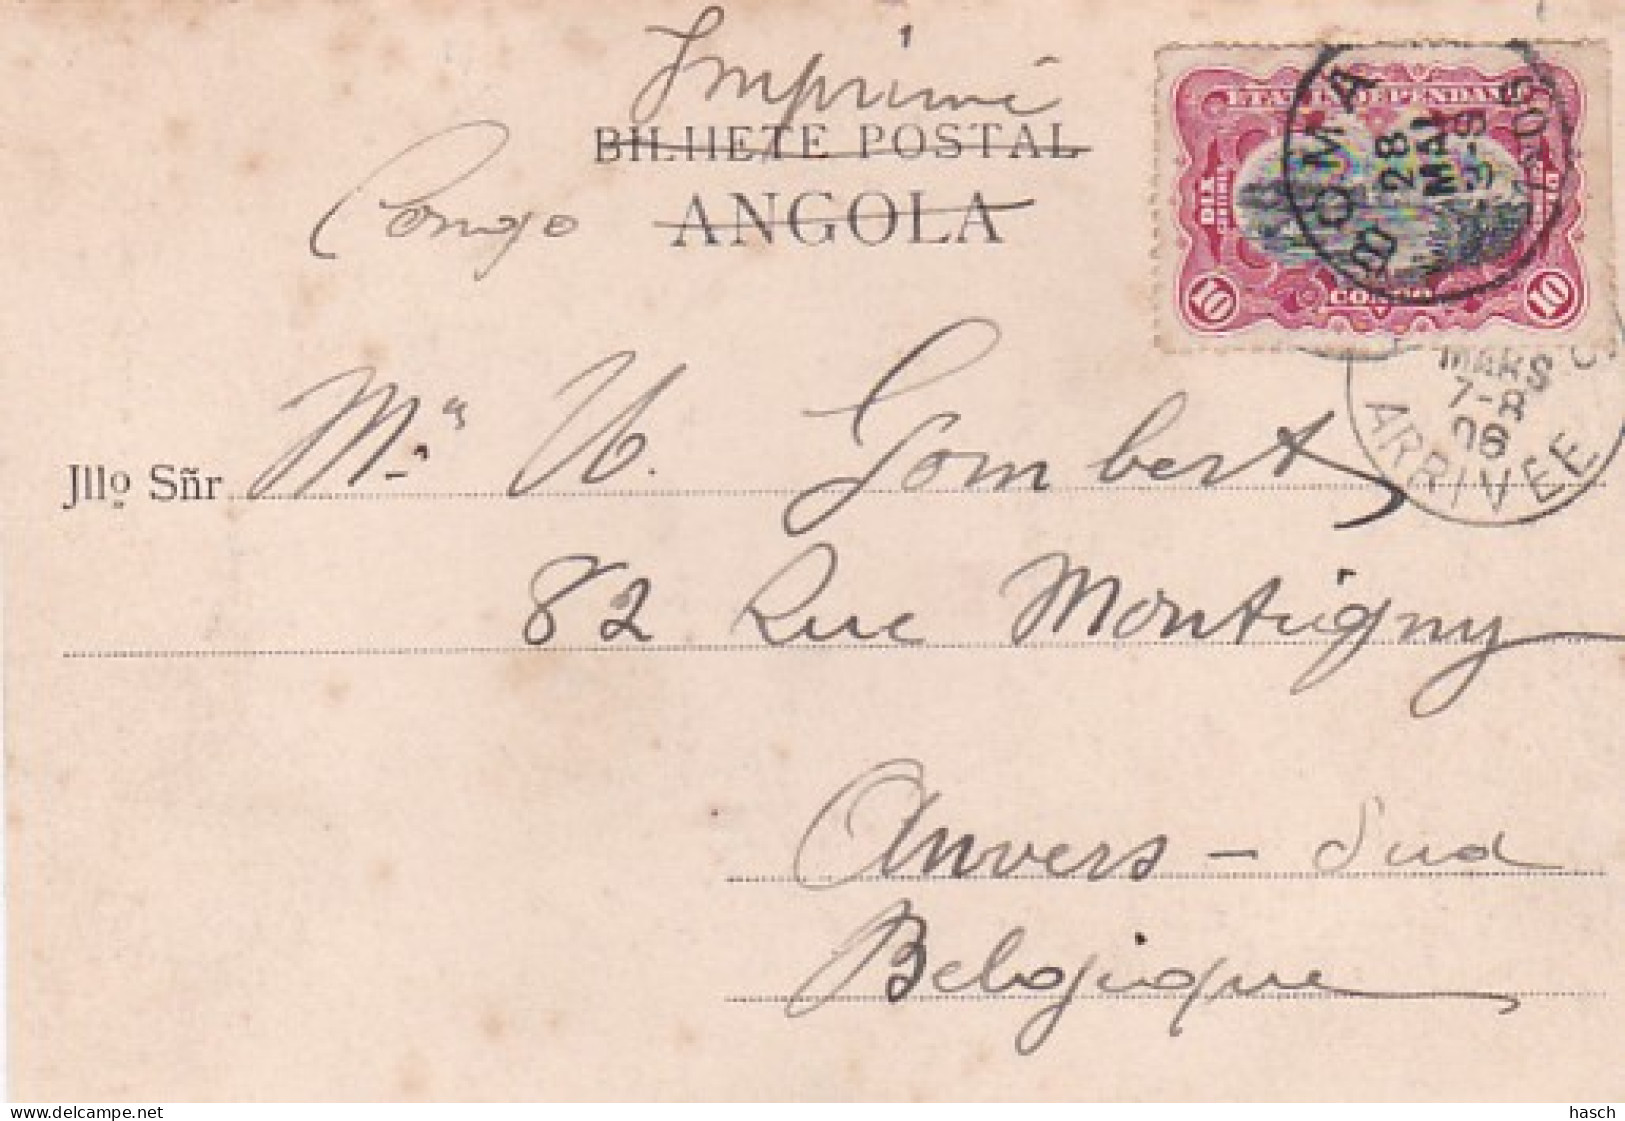 Imprimé
BILHETE POSTAL
Congo ANGOLA
ETAT INDEPENDANT
DIX
10 CONGO 10
BOMA
28
MAI
MARS
7-8
06
ARRIVÉE
Jllo Sñr Mr V. Gombert,
82 Rue Montigny
Anvers - Sud
Belgique
www.delcampe.net
hasch